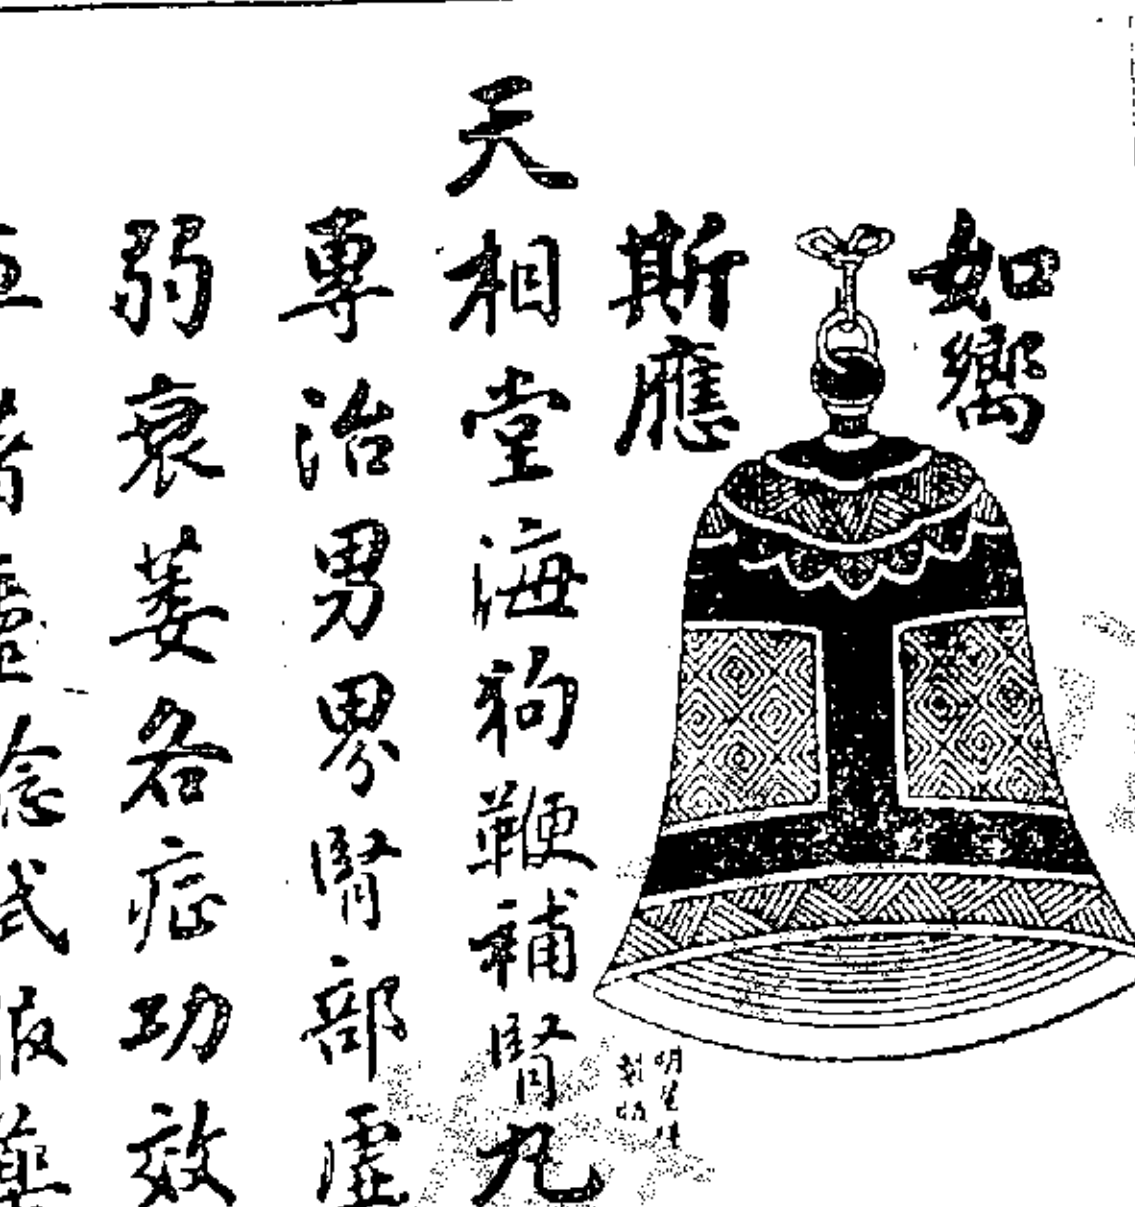 如嚮
斯應
天相堂海狗鞭補腎丸
專治男界腎部虛
弱衰萎各症功效
念式服藥